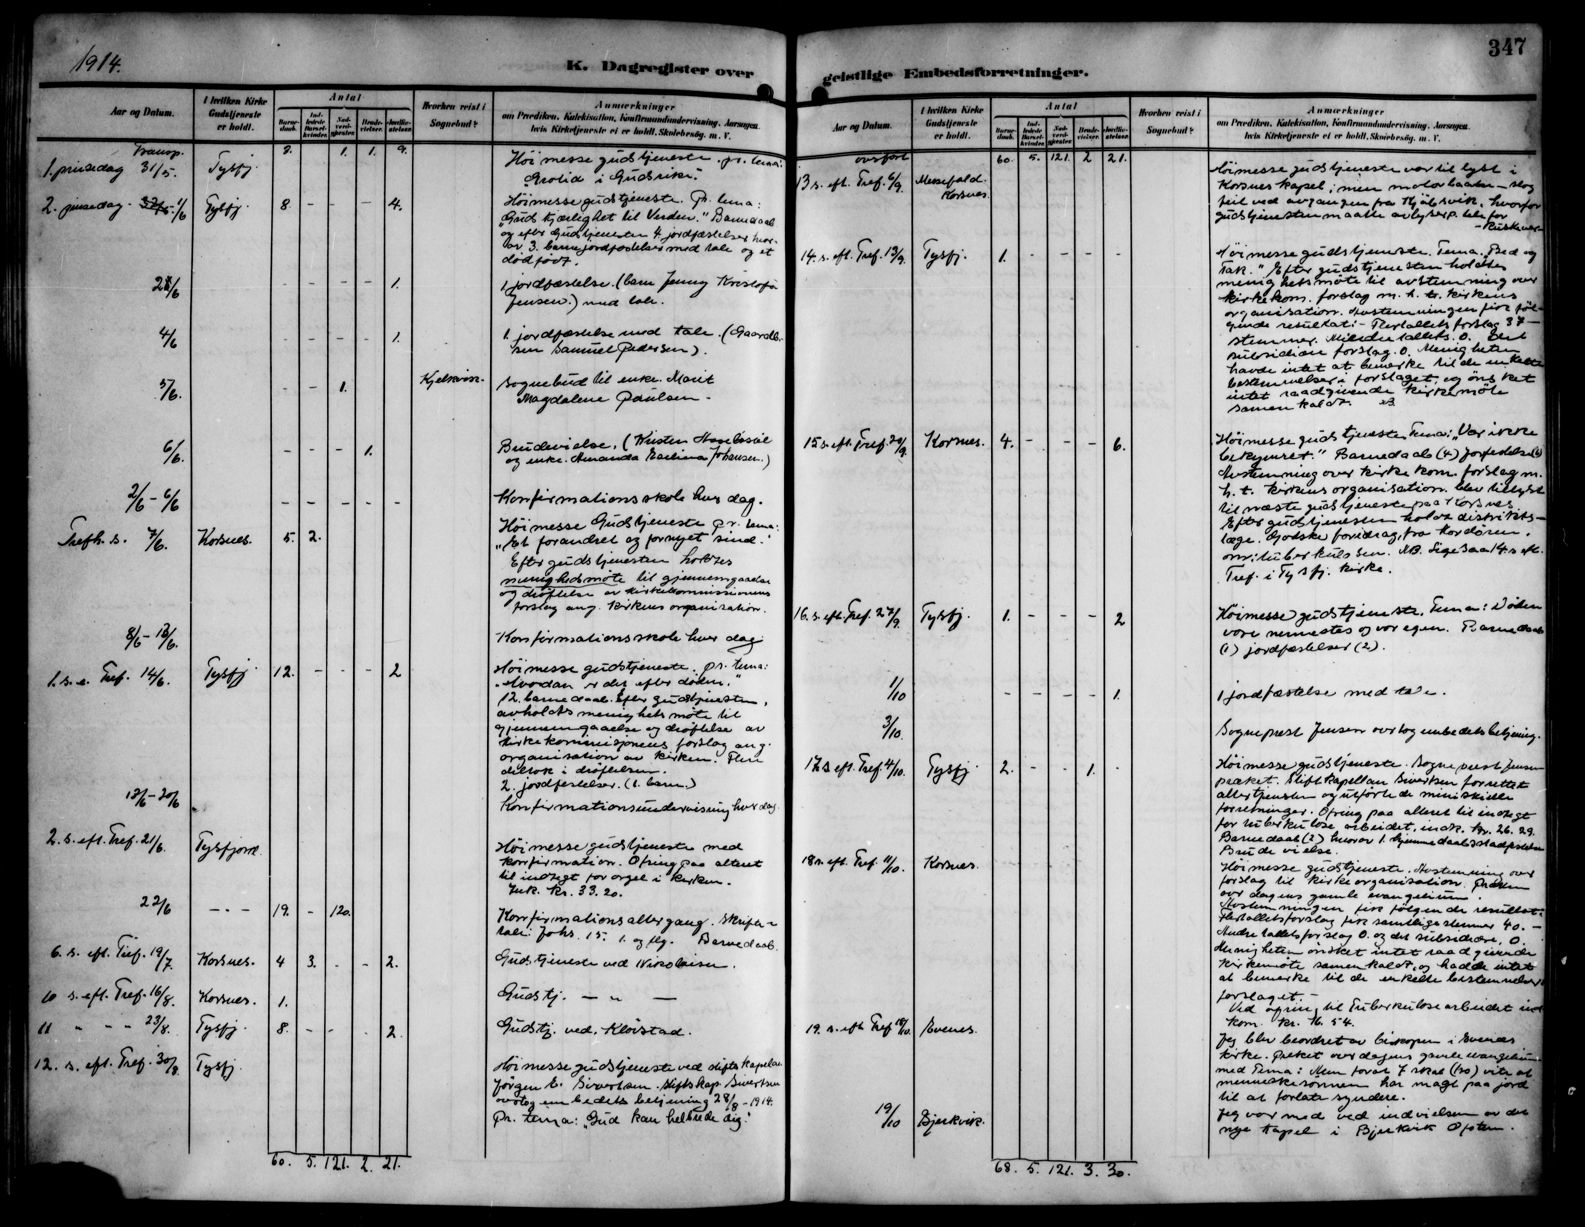 1914.
K. Dagregister over
Aar og Datum.
I hvilken Kirke Gudstjeneste er holdt.
Antal
Barnedaab.
Indledede Barselkvinder.
Nadverdgjæster.
Brudevielser.
Jordfæstelser.
Hvorhen reist i Sognebud?
Anmærkninger
om Prædiken, Katekisation, Konfirmandundervisning, Aarsagen,
hvis Kirketjeneste ei er holdt, Skolebesøg, m. V.
Transp. 8. 1. 1. 9.
1. pinsedag 31/5. Tysfj. Høimesse gudstjeneste. pr. tema:
i Guds rike."
2. pinsedag 1/6 Tysfj. 8 - - - 4. Høimesse gudstjeneste. Pr. tema:
"Guds kjærlighet til Verden." Barnedaab
og efter Gudstjenesten 4 jordfæstelser hvor-
av 3 barnejordfæstelser med tale og et
dødfødt.
2/6 - - - - 1. 1 jordfæstelse. (barn Jenny Kristofa
Jensen.) med tale.
4/6 - - - - 1. 1. jordfæstelse med tale. (Gaardb.
Samuel Pedersen).
5/6. - - 1. Kjelkvik. Sognebud til enke Marit
Magdalene Paulsen.
6/6. - - - 1. Brudevielse. (Kristen
og enke Amanda Johansen.)
2/6 - 6/6 - - - - - Konfirmationsskole hver dag.
Trefh. s. 7/6. Korsnes. 5. 2. Høimesse Gudstjeneste pr. tema:
"Et forandret og fornyet sind."
Efter gudstjenesten holdtes
menighedsmøte til gjennemgaaelse
og drøftelse av kirkekommissionens
forslag ang. kirkens organisation.
8/6 - 13/6. Konfirmationsskole hver dag
1. s. e. Tref. 14/6. Tysfj. 12. - - - 2 Høimesse gudstjeneste. pr. tema:
"Hvordan er det efter døden."
12. barnedaab. Efter gudstjenesten,
avholdts menighetsmøte til
gjennemgaaelse og drøftelse av
kirkekommisjonens forslag ang.
organisation av kirken. Flere
deltok i drøftelsen.
2. jordfestelser. (1. barn.)
- 20/6 Konfirmationsundervisning hver dag
2. s. eft. Tref. 21/6. Tysfjord. Høimesse gudstjeneste med
konfirmation. Ofring paa alteret
til indtægt for orgel i kirken.
Ink. kr. 33.20.
22/6 - " - 19. - 120. Konfirmationsaltergang. Skrifte-
tale: Johs. 15. 1. og flg. Barnedaab.
6. s. eft. Tref. 19/7. Korsnes. 4 3. - - 2. Gudstjeneste ved Nikolaisen.
10 s. eft. Tref. 16/8. Korsnes. 1. Gudstj. — " —
11 " - - 23/8. Tysfj. 8 - - 2. Gudstj. ved. Klovstad.
12. s. eft. Tref. 30/8. Tysfj. Høimesse gudstjeneste ved stiftskapelan
Jørgen E. Sivertsen. Stiftskap. Sivertsen
overtog embedets betjening 28/8 - 1914.
Pr. tema: "Gud kan helbrede dig."
60. 5. 121. 2. 21.
347
geistlige Embedsforretninger.
Aar og Datum.
I hvilken Kirke Gudstjeneste er holdt.
Antal
Barnedaab.
Indledede Barselkvinder.
Nadverdgjæster.
Brudevielser.
Jordfæstelser.
Hvorhen reist i Sognebud?
Anmærkninger
om Prædiken, Katekisation, Konfirmandundervisning, Aarsagen,
hvis Kirketjeneste ei er holdt, Skolebesøg, m. V.
overført 60. 5. 121. 2. 21.
13 s. eft. Tref. 6/9. Messefald Korsnes. Høimesse gudstjeneste var tillyst i
Korsnes kapel; men motorbaaten slog
feil ved avgangen fra Kjøbsvik, hvorfor
gudstjenesten maatte avlyses p. telefon
14. s. eft. Tref. 13/9. Tysfj. 1. - - - - Høimesse gudstjeneste. Tema: Bed og
tak." Efter gudstjenesten holdtes
menighetsmøte til avstemning over
kirkekom. forslag m. h. t. kirkens
organisation. Avstemningen fik føl-
gende resultat:- Flertallets forslag 37 -
stemmer. Mindretallets. 0. Det
subsidiære forslag. 0. Menigheten
havde intet at bemerke til de enkelte
bestemmelser i forslaget, og ønsket
intet raadgivende kirkemøte
samenkaldt.
15 s. eft. Tref. 20/9. Korsnes. 4. - - - 6. Høimesse gudstjeneste Tema: "Vær ikke
bekymret." Barnedaab (4) jordfestelse (6)
Avstemning over kirkekom. forslag m.
h. t. kirkens organisation blev tillyst
til næste gudstjeneste paa Korsnes.
Efter gudstjenesten holdt distrikts-
læge Godske foredrag, fra kordøren,
om: tuberkulosen. NB. Lige saa 14. s. eft.
Tref. i Tysfj. kirke.
16. s. eft. Tref. 27/9. Tysfj. 1. - - - 2 Høimesse gudstjeneste. Tema: Døden
vore nærmestes og vor egen. Barnedaab
(1) jordfæstelser (2).
1/10 - - - - 1. 1 jordfæstelse med tale.
3/10. Sogneprest Jensen overtog embedets betjening.
17. s eft. Tref. 4/10. Tysfj. 2. - - 1. - Høimesse gudstjeneste. Sogneprest Jensen
præket. Stiftskapellan Sivertsen forrettet
altertjenesten og utførte de ministrielle
forretninger. Ofring paa alteret til indtægt
for tuberkulosearbeidet, indk. kr. 26.29.
Barnedaab (2) hvorav 1. hjemmedaabsstadfestelse
Brudevielse.
18 s. eft. Tref. 11/10. Korsnes. Høimesse gudstjeneste. Avstemning over
forslag til kirkeorganisation. Præken
over dagens gamle evangelium.
Avstemningen fik følgende resultat:
Flertallets forslag fik samtlige stemmer 40. -
Mindretallets forslag 0. og det subsidiære, 0.
Menigheten ønsket intet raadgivende
kirkemøte samenkaldt, og hadde intet
at bemerke til de enkelte bestemmelser i
forslaget. -
Ved ofring til Tuberkulosearbeidet ind
kom. kr. 16.54.
19. s. eft. Tref. 18/10. Evenes. Jeg blev beordret av biskopen i Evenes
kirke. Præket over dagens gamle evangelium
med Tema: Men forat I skal (so) vite at
menneskesønnen har magt paa jord
til at forlate syndere.
19/10 Bjerkvik. Jeg var med ved indvielsen av det
nye kapel i Bjerkvik Ofoten.
68. 5. 121. 3. 30.